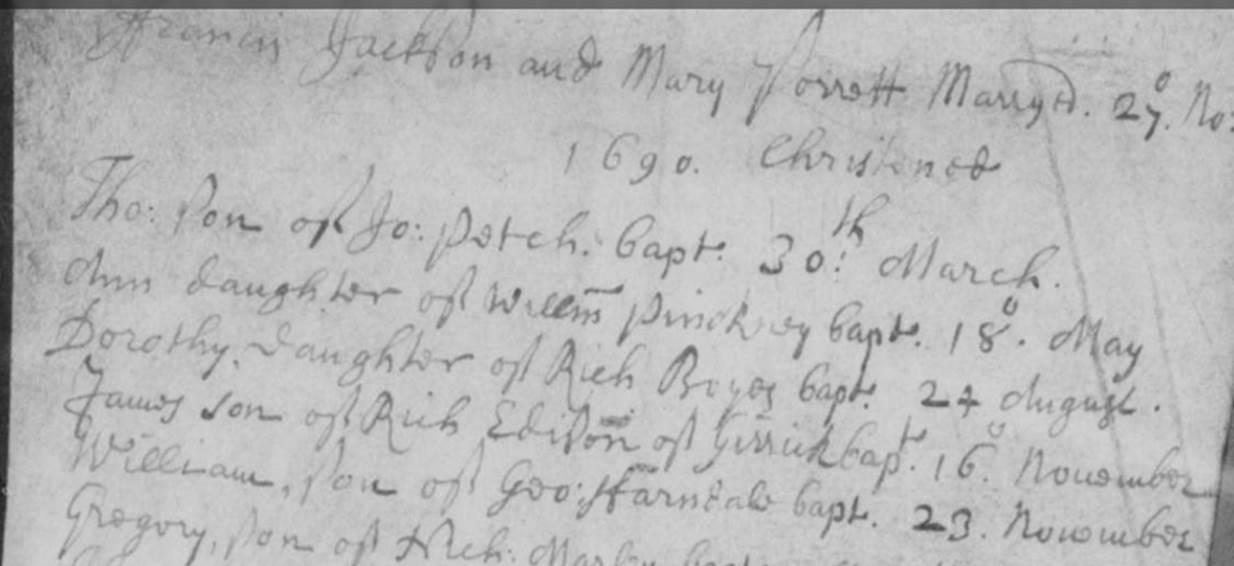 Francis Jackson and Mary Porrett Marryed. 27º. No:
1690. Christened
Tho: son of Jo: Petch. bapt. 30th. March.
Ann daughter of Willm Pinckney bapt. 18º. May
Dorothy daughter of Rich Boyes bapt. 24 August.
James son of Rich Edison of Girrick bapt. 16º November
William, son of Geo: Harndale bapt. 23. November
Gregory, son of Nich: Marley